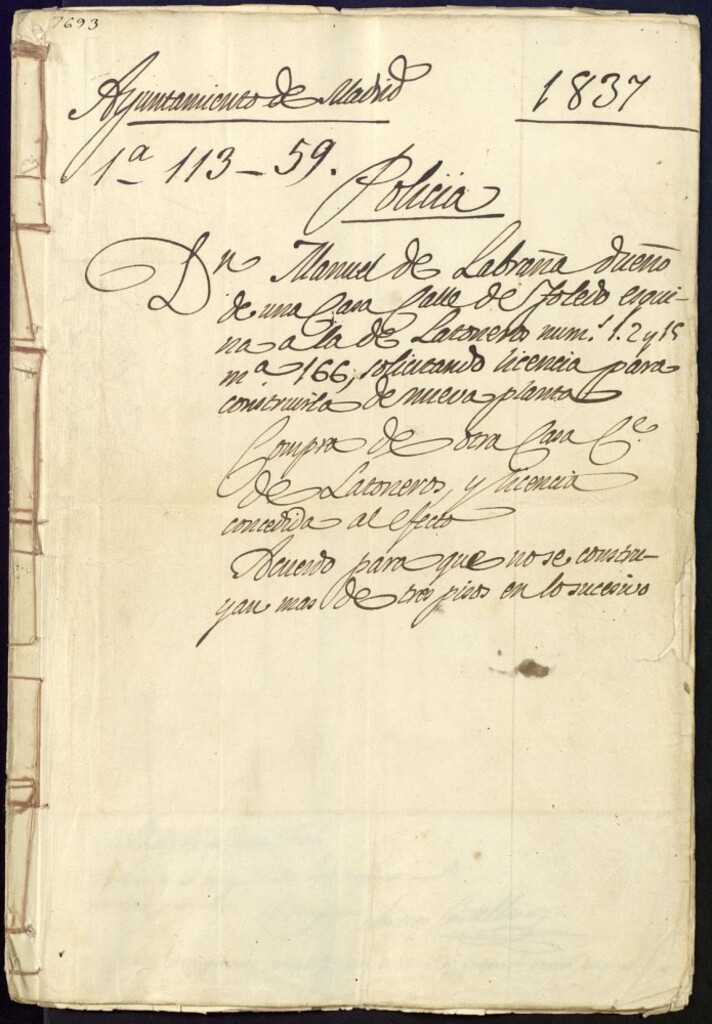 7693
Ayuntamiento de Madrid
1837
1ª 113-59.
Policia
Dn Manuel de Labraña dueño
de una Casa Calle de Toledo esqui-
na a la de Latoneros num.s 1. 2 y 15
mª 166, solicitando licencia para
construirla de nueva planta
Compra de otra Casa C.e
de Latoneros, y licencia
concedida al efecto
Acuerdo para que no se constru-
yan mas de tres pisos en lo sucesivo